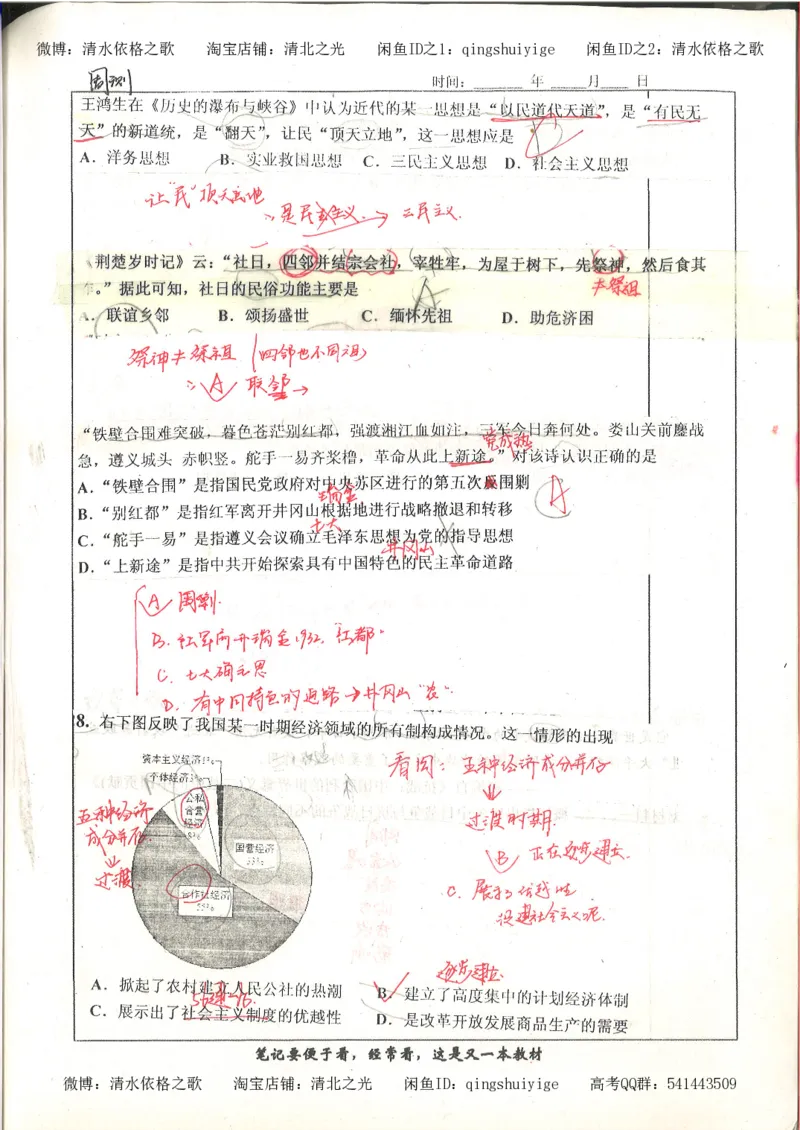 微博：清水依格之歌 淘宝店铺：清北之光 闲鱼ID之1：qingshuiyige 闲鱼ID之2：清水依格之歌
周测
时间：______年____月____日
王鸿生在《历史的瀑布与峡谷》中认为近代的某一思想是“以民道代天道”，是“有民无
天”的新道统，是“翻天”，让民“顶天立地”，这一思想应是
A．洋务思想 B．实业救国思想 C．三民主义思想 D．社会主义思想
让“民”顶天立地
是民主主义 → 三民主义.
《荆楚岁时记》云：“社日，四邻并结宗会社，宰牲牢，为屋于树下，先祭神，然后食其
。”据此可知，社日的民俗功能主要是
≠祭祖
A．联谊乡邻 B．颂扬盛世 C．缅怀先祖 D．助危济困
祭神≠祭祖（四邻也不同祖）
A 联邻→
“铁壁合围难突破，暮色苍茫别红都，强渡湘江血如注，三军今日奔何处。娄山关前鏖战
急，遵义城头 赤帜竖。舵手一易齐桨橹，革命从此上新途。”对该诗认识正确的是
A．“铁壁合围”是指国民党政府对中央苏区进行的第五次围剿
瑞金
B．“别红都”是指红军离开井冈山根据地进行战略撤退和转移
七大
C．“舵手一易”是指遵义会议确立毛泽东思想为党的指导思想
井冈山
D．“上新途”是指中共开始探索具有中国特色的民主革命道路
A 围剿.
B. 红军离开瑞金，“红都”
C. 七大确毛思
D. 有中国特色的道路→井冈山“农”
8．右下图反映了我国某一时期经济领域的所有制构成情况。这一情形的出现
资本主义经济
个体经济3%
公私
合营
经济
8%
国营经济
33%
合作社经济
55%
五种经济
成分并存
过渡.
看图：五种经济成分并存
过渡时期.
B 正在逐步建立.
C. 展示了优越性
没建社会主义呢.
逐步建立
A．掀起了农村建立人民公社的热潮 B．建立了高度集中的计划经济体制
C．展示出了社会主义制度的优越性 D．是改革开放发展商品生产的需要
笔记要便于看，经常看，这是又一本教材
微博：清水依格之歌 淘宝店铺：清北之光 闲鱼ID：qingshuiyige 高考QQ群：541443509